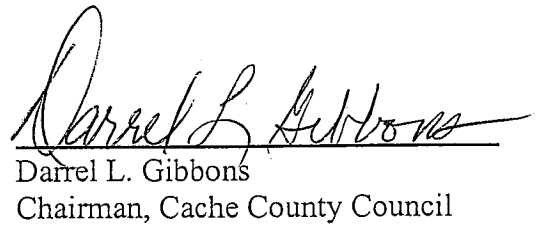 Darrel L. Gibbons
Darrel L. Gibbons
Chairman, Cache County Council